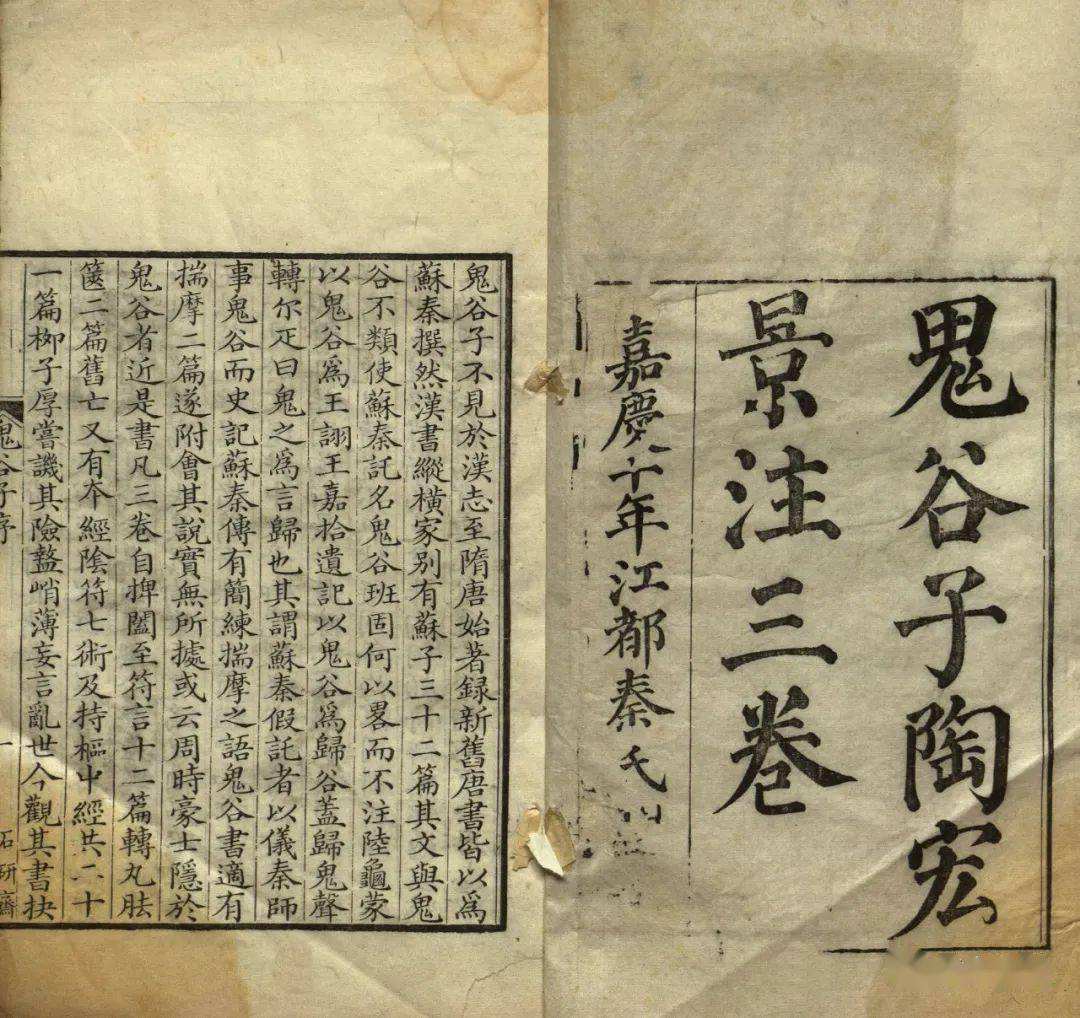 鬼谷子陶宏
景注三卷
嘉慶十年江都秦氏
鬼谷子不見於漢志至隋唐始著録新舊唐書皆以爲
蘇秦撰然漢書縱橫家别有蘇子三十二篇其文與鬼
谷不類使蘇秦託名鬼谷班固何以畧而不注陸龜蒙
以鬼谷爲王詡王嘉拾遺記以鬼谷爲歸谷蓋歸鬼聲
轉尔疋曰鬼之爲言歸也其謂蘇秦假託者以儀秦師
事鬼谷而史記蘇秦傳有簡練揣摩之語鬼谷書適有
揣摩二篇遂附會其說實無所據或云周時豪士隱於
鬼谷者近是書凡三卷自捭闔至符言十二篇轉丸胠
篋二篇舊亡又有夲經陰符七術及持樞中經共二十
一篇栁子厚嘗譏其險盭峭薄妄言亂世今觀其書抉
鬼谷子序
一
石研齋